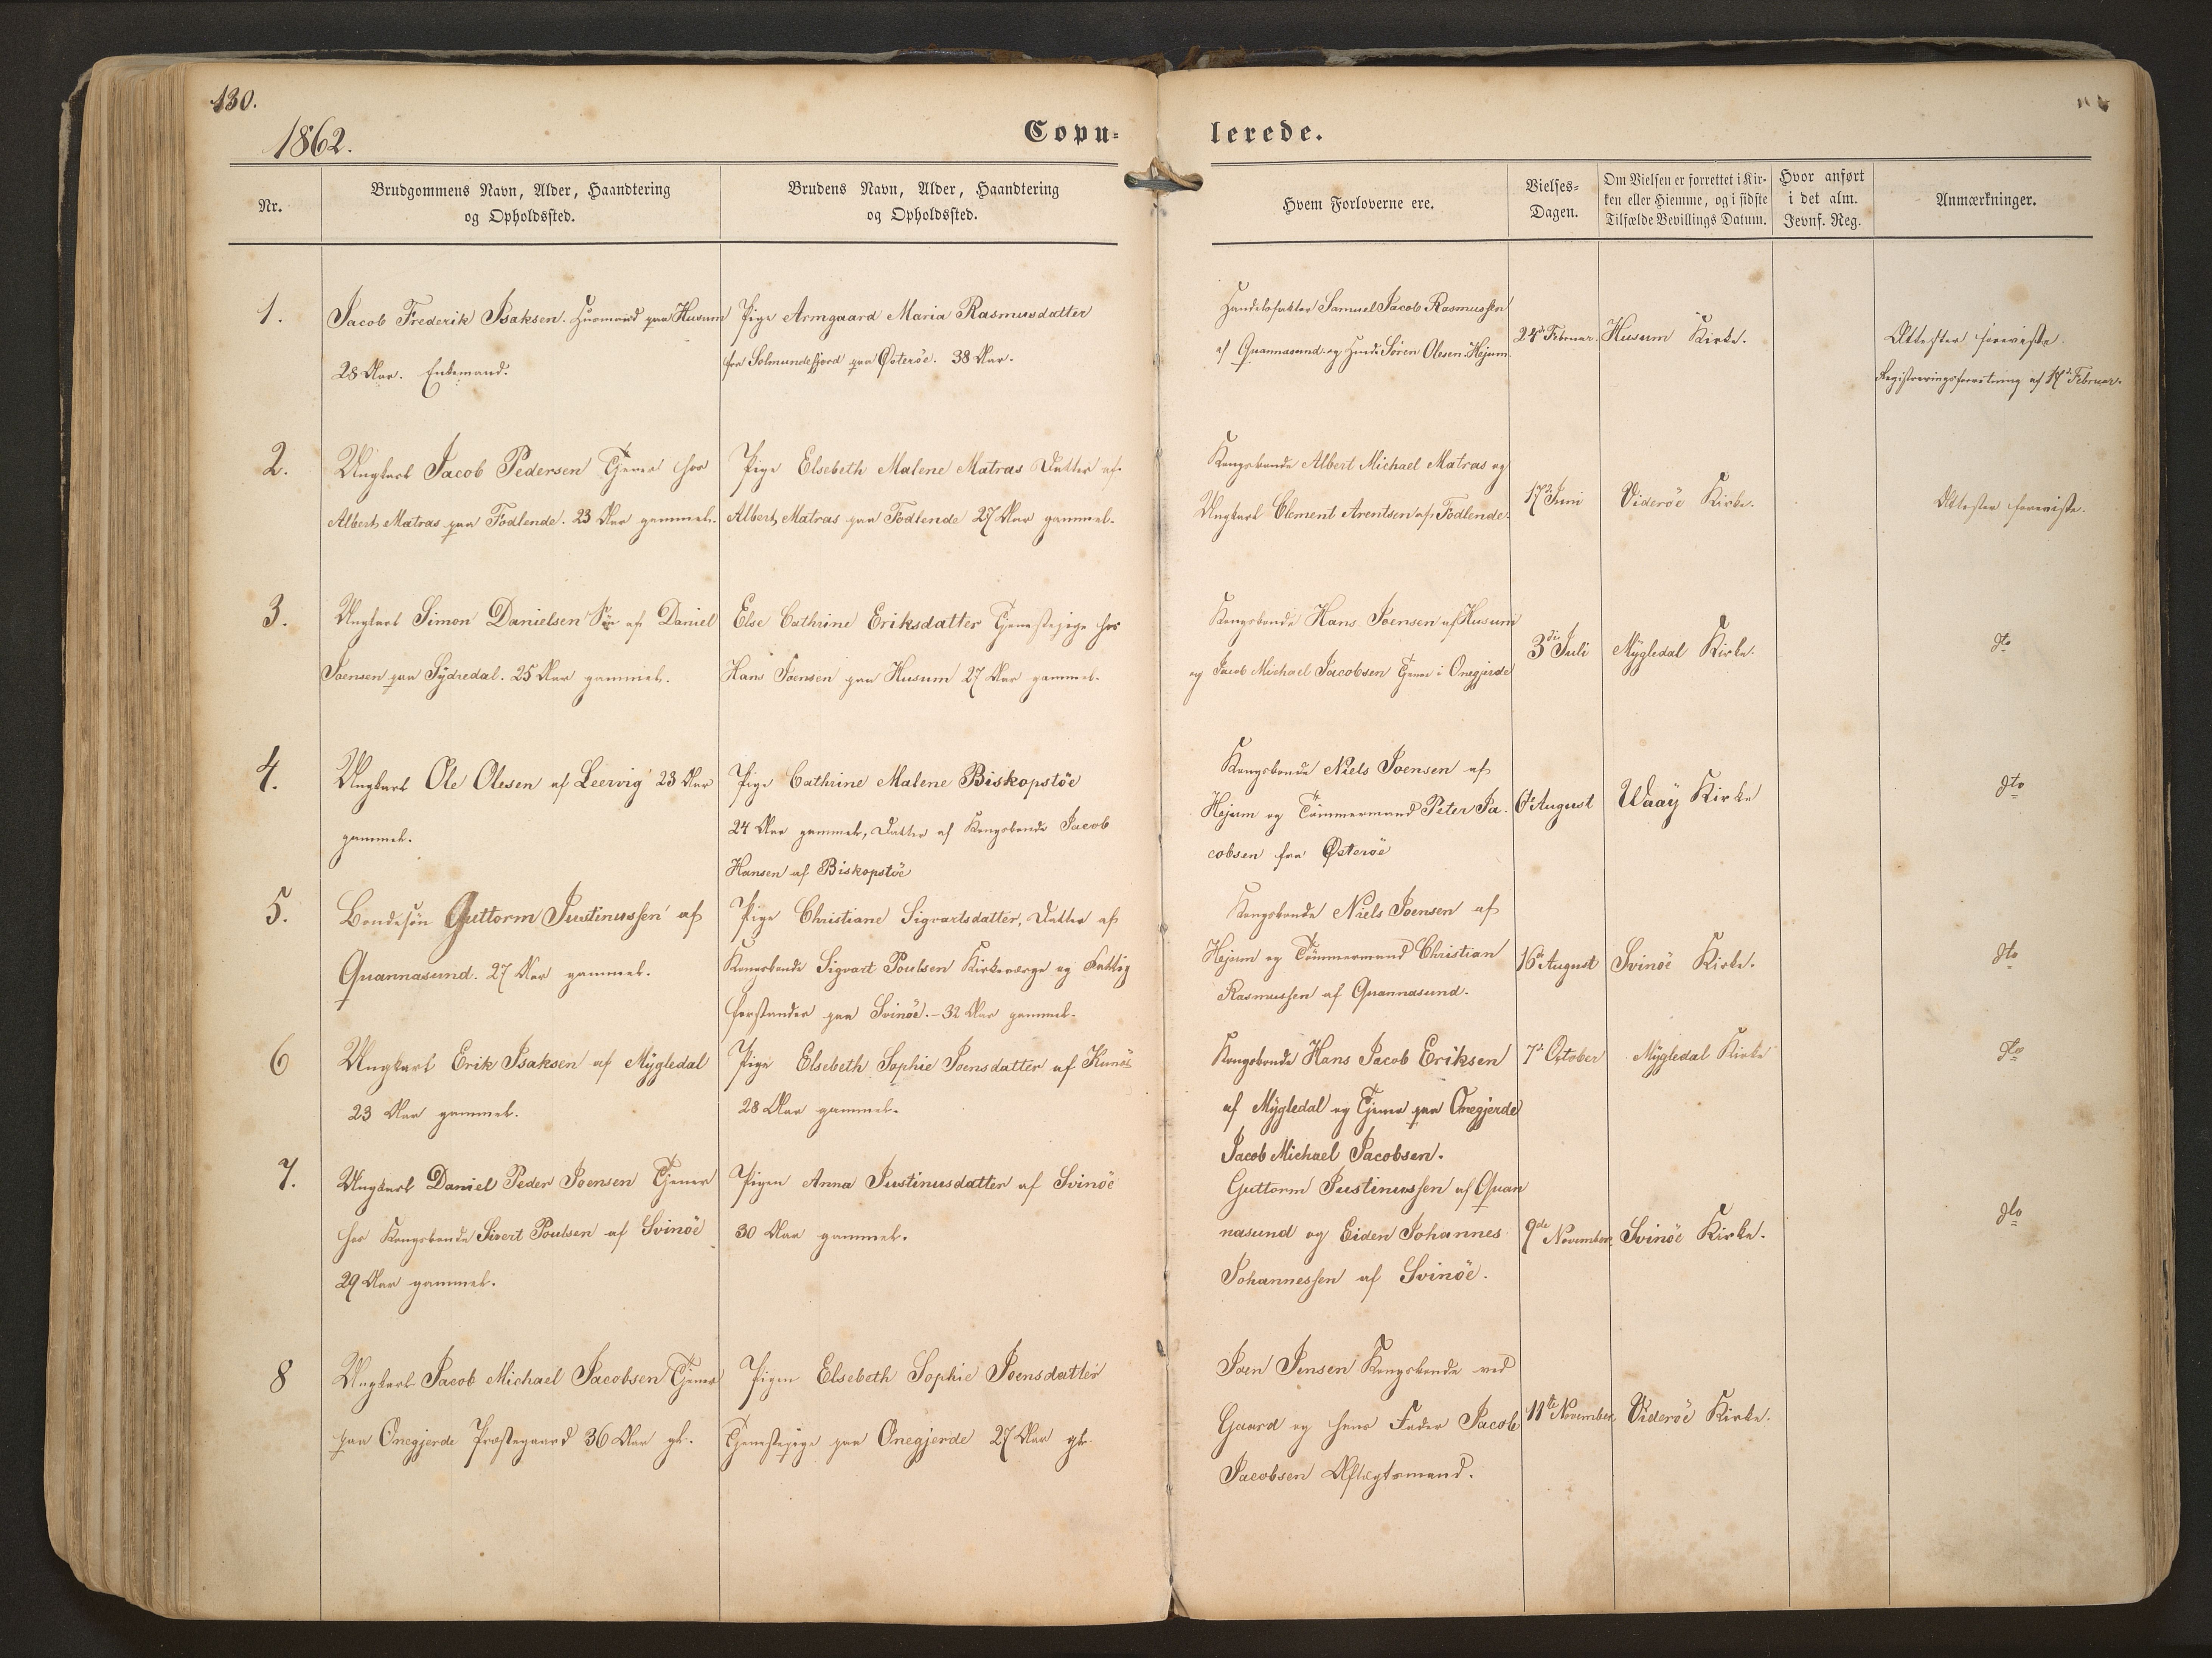 130.
1862.
Copu-
lerede.
Nr.
Brudgommens Navn, Alder, Haandtering
og Opholdssted.
Brudens Navn, Alder, Haandtering
og Opholdssted.
Hvem Forloverne ere.
Vielses-
Dagen.
Om Vielsen er forrettet i Kir-
ken eller Hiemme, og i sidste
Tilfælde Bevillings Datum.
Hvor anført
i det alm.
Jevnf. Reg.
Anmærkninger.
1.
Jacob Frederik Isaksen. Huusmand paa Husum
28 Aar. Enkemand.
Pige Armgaard Maria Rasmusdatter
fra Solmundefjord paa Østerøe. 38 Aar.
Handelsfaktor Samuel Jacob Rasmussen
af Quannasund og Søren Olesen Hejum.
24de Februar.
Husum Kirke.
Attester foreviste.
Registreringsforretning af 17de Februar.
2.
Ungkarl Jacob Pedersen Tjener hos
Albert Matras paa Todlende. 23 Aar gammel.
Pige Elsebeth Malene Matras Datter af
Albert Matras paa Todlende 27 Aar gammel.
Kongsbonde Albert Michael Matras og
Ungkarl Clement Arentsen af Todlende.
17de Juni
Viderøe Kirke.
Attester foreviste.
3.
Ungkarl Simon Danielsen Søn af Daniel
Joensen paa Sydredal. 25 Aar gammel.
Else Cathrine Eriksdatter Tjenestepige hos
Hans Joensen paa Husum 27 Aar gammel.
Kongsbonde Hans Joensen af Husum
og Jacob Michael Jacobsen Tjener i Onegjerde
3die Juli
Mygledal Kirke.
dto
4.
Ungkarl Ole Olesen af Leervig 23 Aar
gammel.
Pige Cathrine Malene Biskopstøe
24 Aar gammel, Datter af Kongsbonde Jacob
Hansen af Biskopstøe
Kongsbonde Niels Joensen af
Hejum og Tömmermand Peter Ja-
cobsen fra Østerøe
6te August
Waaÿ Kirke
dto
5.
Bondesøn Guttorm Justinussen af
Quannasund. 27 Aar gammel.
Pige Christiane Sigvartsdatter, Datter af
Kongsbonde Sigvart Poulsen Kirkeværge og Fattig
forstander paa Svinöe. – 32 Aar gammel.
Kongsbonde Niels Joensen af
Hejum og Tömmermand Christian
Rasmussen af Quannasund.
16de August
Svinöe Kirke.
dto
6
Ungkarl Erik Isaksen af Mygledal
23 Aar gammel.
Pige Elsebeth Sophie Joensdatter af Kunöe
28 Aar gammel.
Kongsbonde Hans Jacob Eriksen
af Mygledal og Tjener paa Onegjerde
Jacob Michael Jacobsen.
7de October
Mygledal Kirke
dto
7.
Ungkarl Daniel Peder Joensen Tjener
hos Kongsbonde Sivert Poulsen af Svinöe
29 Aar gammel.
Pigen Anna Justinusdatter af Svinöe
30 Aar gammel.
Guttorm Justinussen af Quan
nasund og Eiden Johannes
Johannessen af Svinöe.
9de November.
Svinöe Kirke.
dto
8
Ungkarl Jacob Michael Jacobsen Tjener
paa Onegjerde Præstegaard 36 Aar gl.
Pigen Elsebeth Sophie Joensdatter
Tjenestepige paa Onegjerde 27 Aar gl.
Joen Jensen Kongsbonde ved
Gaard og hans Fader Jacob
Jacobsen Aftægtsmand.
11te November.
Viderøe Kirke.